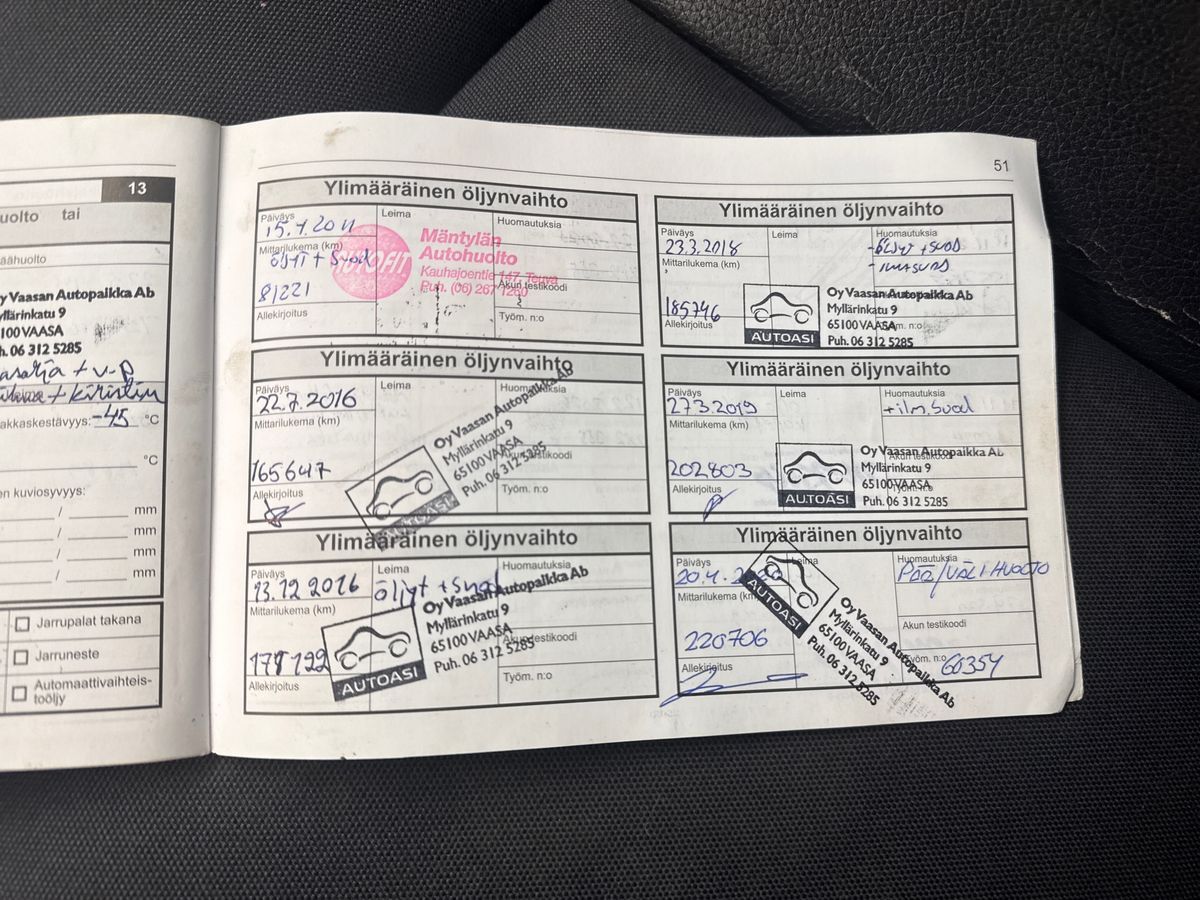 13
uolto tai
äähuolto
y Vaasan Autopaikka Ab
yllärinkatu 9
100 VAASA
h. 06 312 5285
akkaskestävyys: -45 °C
°C
en kuviosyvyys:
/ mm
/ mm
/ mm
/ mm
Jarrupalat takana
Jarruneste
Automaattivaihteis-
toöljy
51
Ylimääräinen öljynvaihto
Päiväys
Leima
Huomautuksia
Mittarilukema (km)
öljyt + Suod
81221
Allekirjoitus
AUTOFIT
Mäntylän
Autohuolto
Kauhajoentie 147, Teuva
Puh. (06) 267 1260
Akun testikoodi
Työm. n:o
Ylimääräinen öljynvaihto
Päiväys
22.7.2016
Leima
Huomautuksia
Mittarilukema (km)
165647
Allekirjoitus
AUTOASI
Oy Vaasan Autopaikka Ab
Myllärinkatu 9
65100 VAASA
Puh. 06 312 5285
Akun testikoodi
Työm. n:o
Ylimääräinen öljynvaihto
Päiväys
13.12 2016
Leima
öljyt + Suod
Huomautuksia
Mittarilukema (km)
Allekirjoitus
AUTOASI
Oy Vaasan Autopaikka Ab
Myllärinkatu 9
65100 VAASA
Puh. 06 312 5285
Akun testikoodi
Työm. n:o
Ylimääräinen öljynvaihto
Päiväys
23.3.2018
Leima
Huomautuksia
- öljyt + suod
- ILMASUOD
Mittarilukema (km)
185746
Allekirjoitus
AUTOASI
Oy Vaasan Autopaikka Ab
Myllärinkatu 9
65100 VAASA
Puh. 06 312 5285
Ylimääräinen öljynvaihto
Päiväys
27.3.2019
Leima
Huomautuksia
+ ilm. Suod
Mittarilukema (km)
202803
Allekirjoitus
AUTOASI
Oy Vaasan Autopaikka Ab
Myllärinkatu 9
65100 VAASA
Puh. 06 312 5285
Akun testikoodi
Ylimääräinen öljynvaihto
Päiväys
20.4.2020
Leima
Huomautuksia
PÄÄ/VÄLIHUOLTO
Mittarilukema (km)
220706
Allekirjoitus
AUTOASI
Oy Vaasan Autopaikka Ab
Myllärinkatu 9
65100 VAASA
Puh. 06 312 5285
Akun testikoodi
Työm. n:o
66354